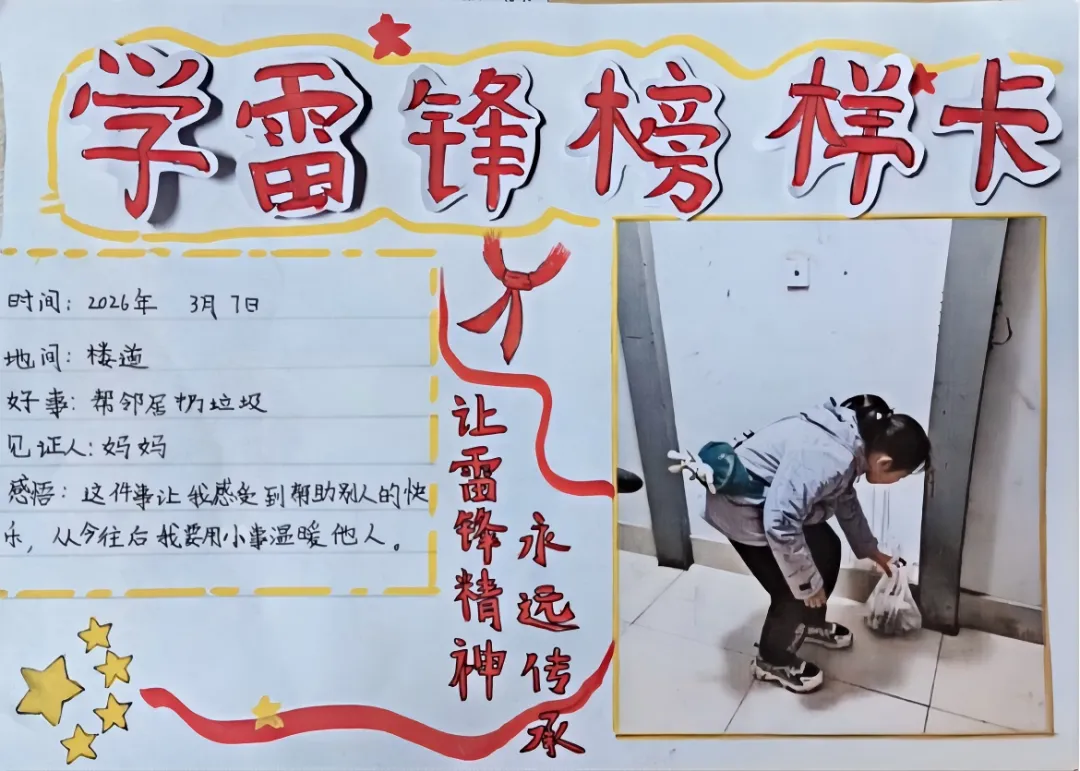 学雷锋榜样卡
时间：2026年 3月7日
地间：楼道
好事：帮邻居扔垃圾
见证人：妈妈
感悟：这件事让我感受到帮助别人的快
乐，从今往后我要用小事温暖他人。
让雷锋精神
永远传承